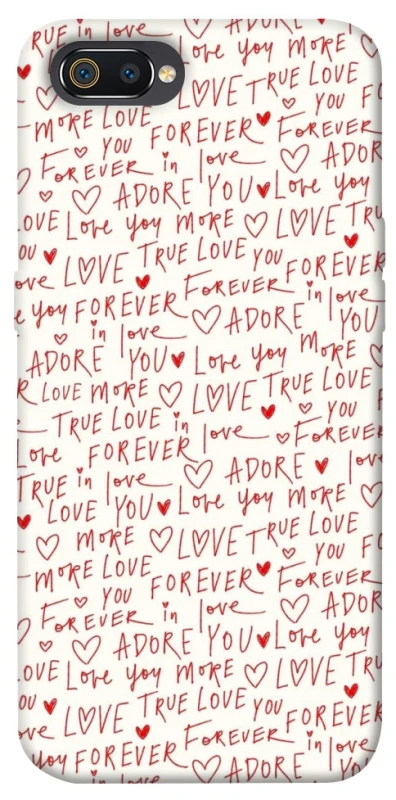 RUE in love
Love you MORE
LOVE TRUE LOVE
MORE LOVE
YOU
FOREVER FOREVER
YOU F
FOREVER in love
ADOR
ADORE YOU Love you
OVE Love you MORE LOVE TRU
OU LOVE TRUE LOVE YOU FOREVER
ove
e you FOREVER FOREVER in love
in love ADORE YOU
ADORE YOU Love you MORE
R LOVE MORE LOVE TRUE LOVE
TRUE LOVE in love FOREVER
YOU
Love FOREVER
TRUE in love ADORE love
LOVE YOU Love you MORE
MORE LOVE TRUE LOVE
YOU FO
MORE LOVE
YOU FOREVER FOREVER
FOREVER in love ADOR
ADORE YOU Love you
OVE Love you MORE LOVE TRU
OU LOVE TRUE LOVE YOU FOREVER
ove
you FOREVER FOREVER in love
in love ADORE YOU